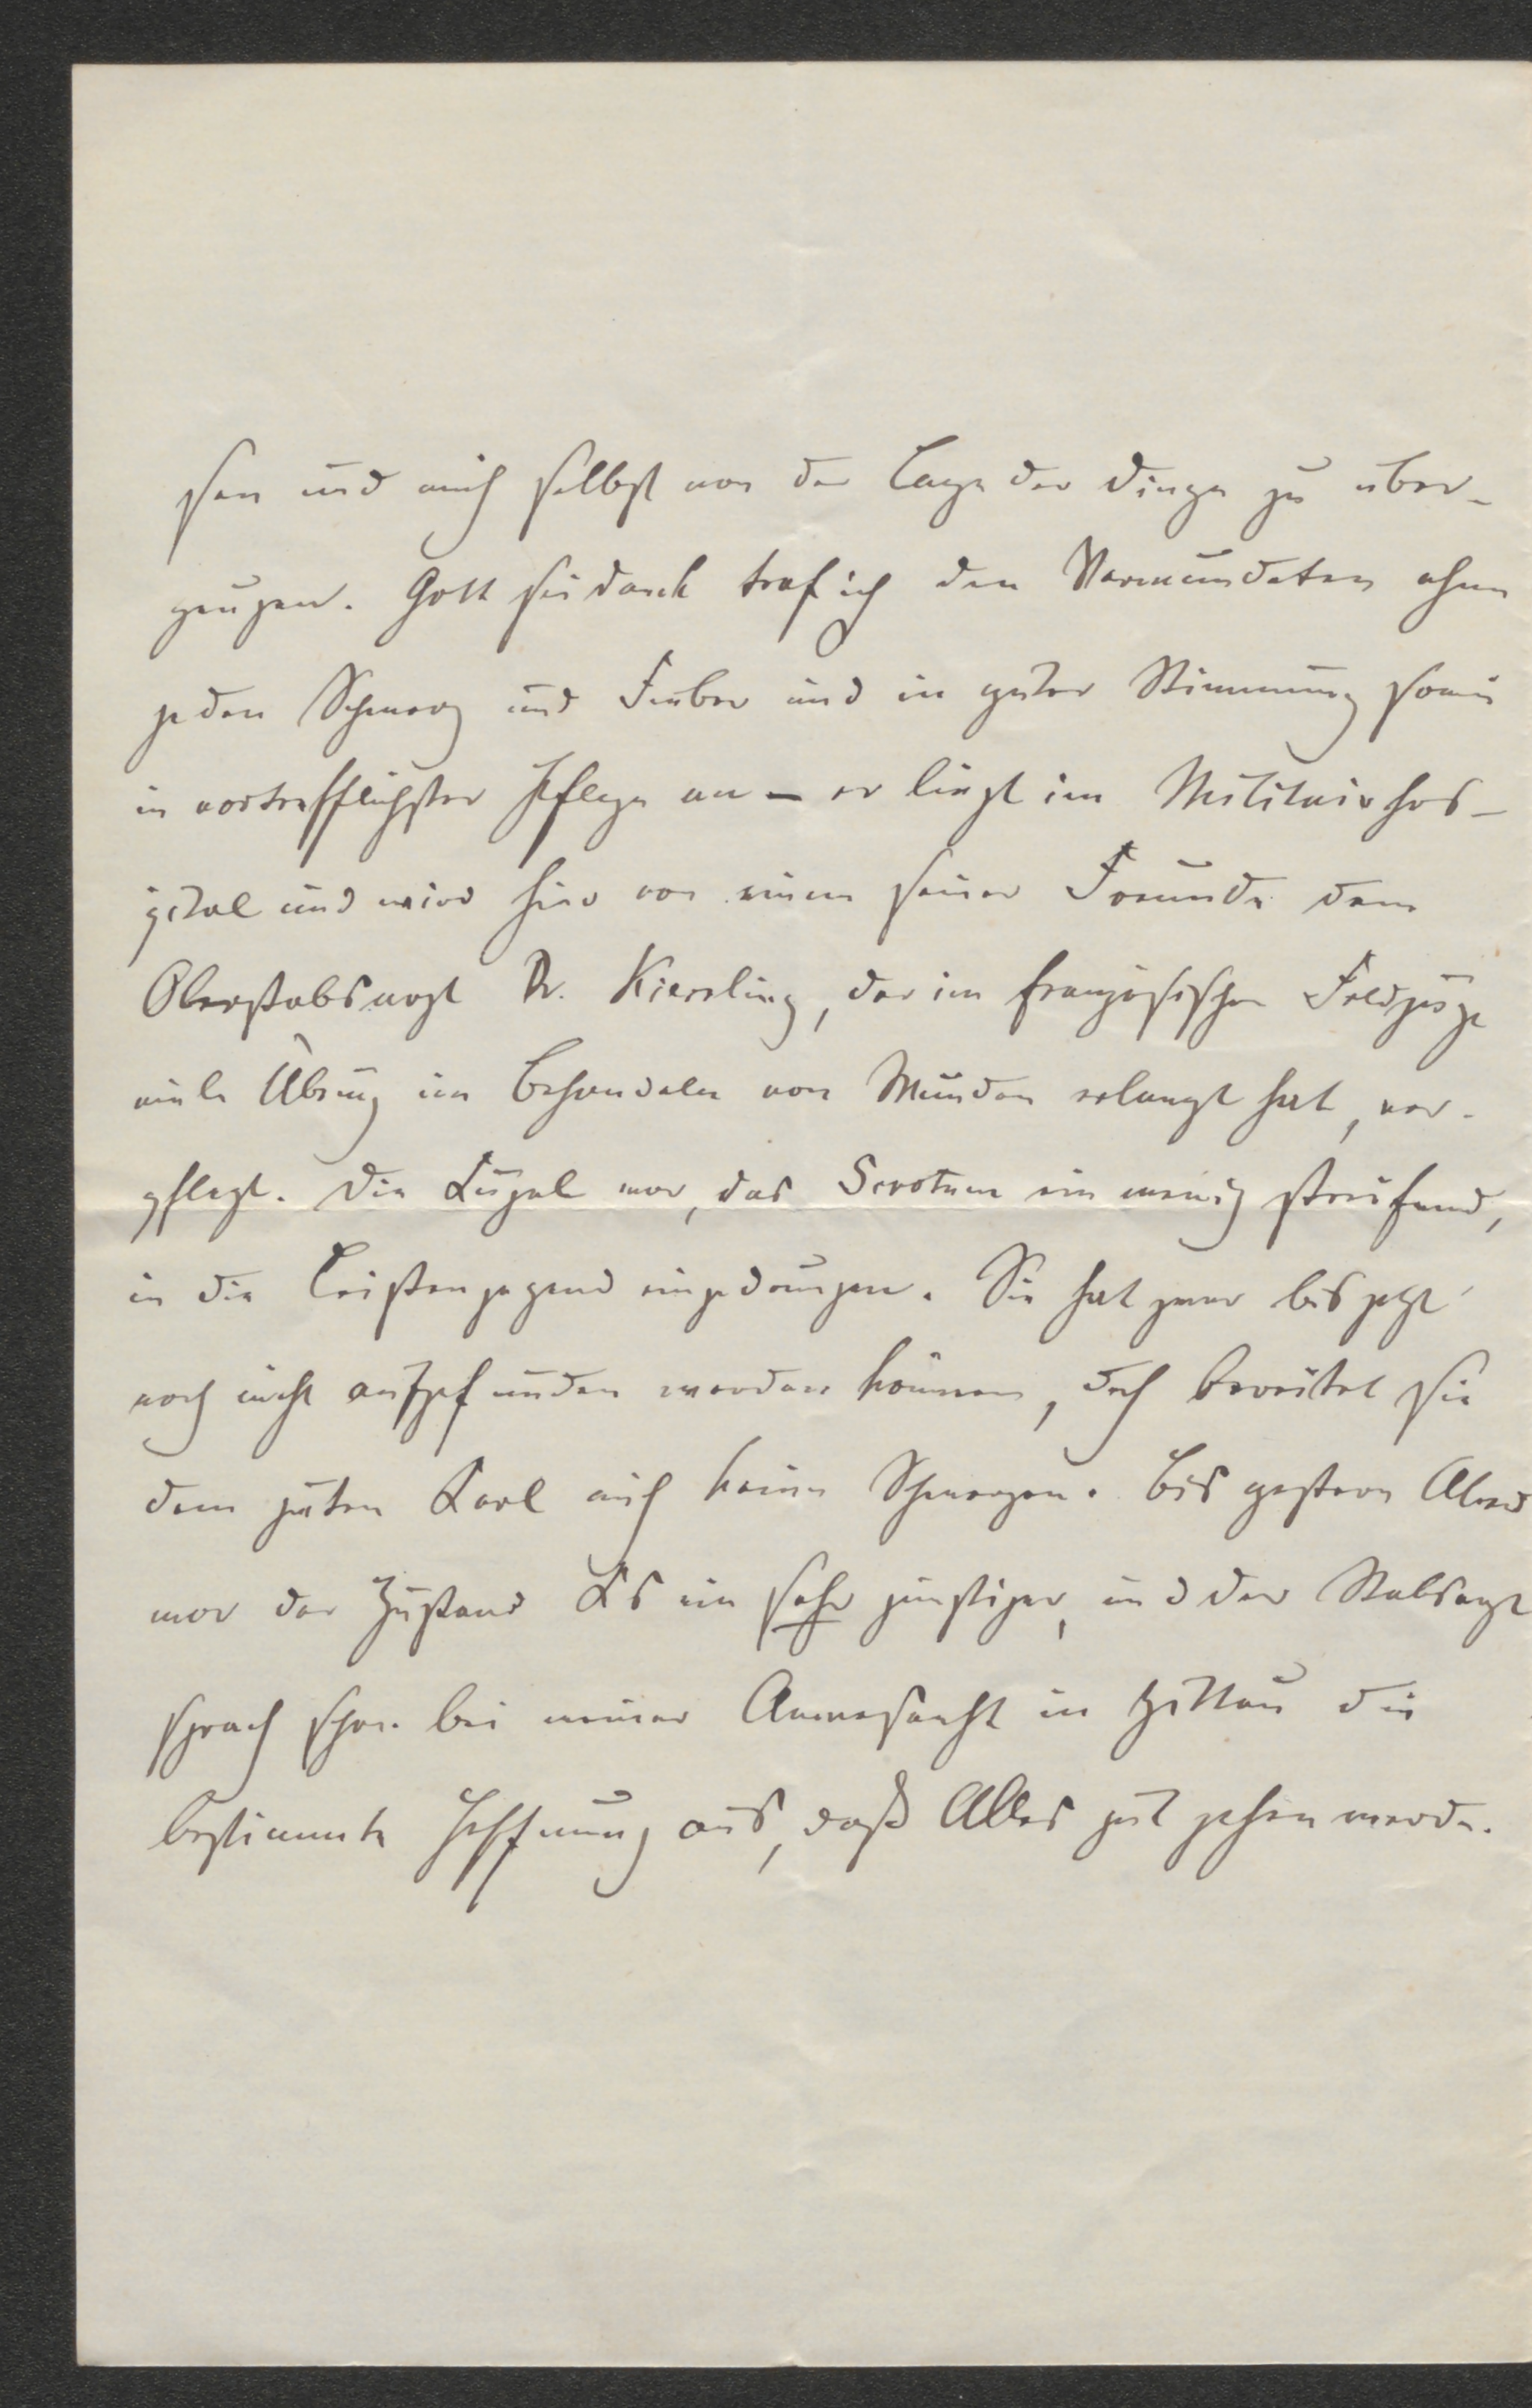 sen und mich selbst von der Lage der Dinge zu über-
zeugen. Gott sei dank traf ich den Verwundeten ohne
jeden Schmerz und Fieber und in guter Stimmung sowie
in vortrefflichster Pflege an – er liegt im Militairhos-
pital und wird hier von einem seiner Freunde dem
Oberstabsarzt Dr. Kiessling, der im französischen Feldzuge
viele Übung im Behandeln von Wunden erlangt hat, ver-
pflegt. Die Kugel war, das Scrotum ein wenig streifend,
in die Leistengegend eingedrungen. Sie hat zwar bis jetzt
noch nicht aufgefunden werden können, doch bereitet sie
dem guten Karl auch keine Schmerzen. Bis gestern Abend
war der Zustand Ks ein sehr günstiger, und der Stabsarzt
sprach schon bei meiner Anwesenheit in Zittau die
bestimmte Hoffnung aus, daß Alles gut gehen werde.